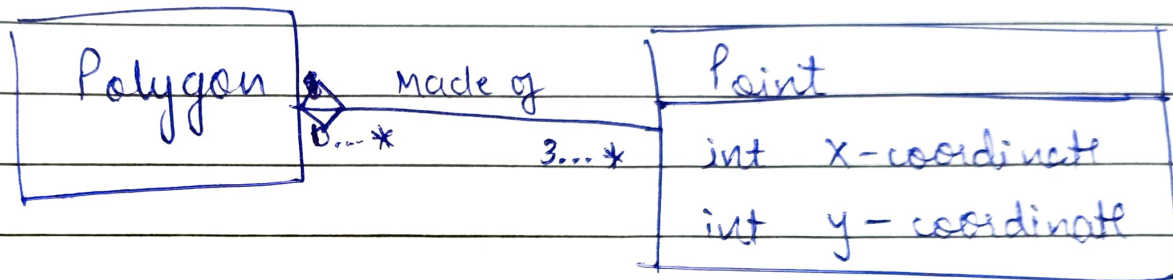 Polygon
Made of
0...*
3...*
Point
int x-coordinate
int y-coordinate